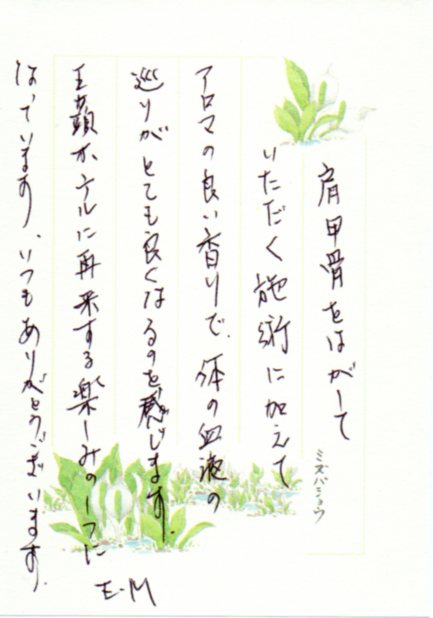 肩甲骨をはがして
いただく施術に加えて
アロマの良い香りで、体の血液の
巡りがとても良くなるのを感じます。
ホテルに再来する楽しみの一つに
なっています、いつもありがとうございます。
E.M
ミズバショウ